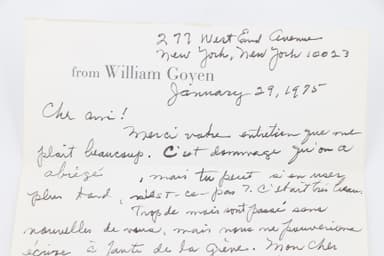 277 West End Avenue
New York, New York 10023
from William Goyen
January 29, 1975
Cher ami!
Merci votre entretien que me
plaît beaucoup. C'est dommage qu'on a
abiégé, mais tu peut si en user
plus tard, n'est-ce-pas?. C'était très beau.
Trop de mois sont passé sans
nouvelles de vous, mais nous ne pouvions
écrire à faute de la grève. Mon cher